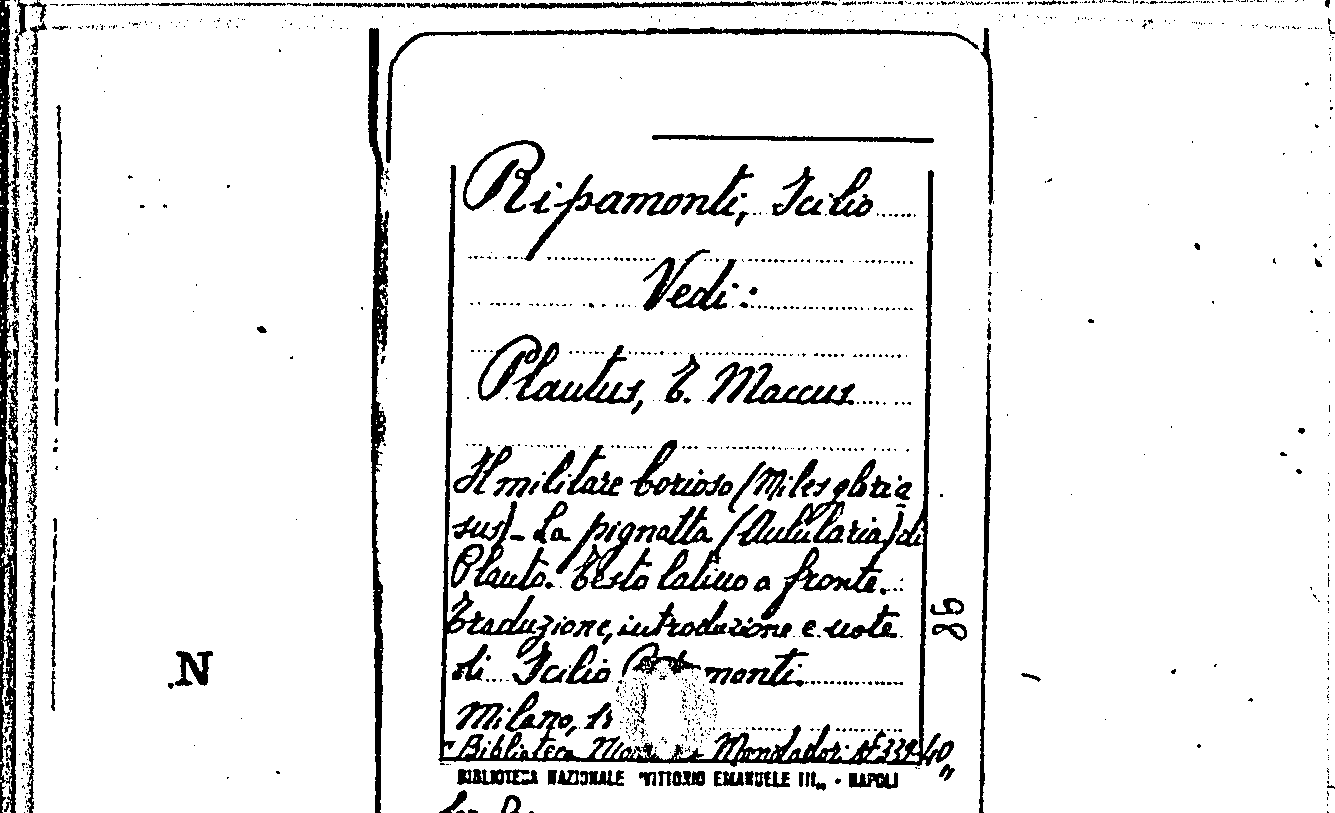 Ripamonti, Icilio
Vedi:
Plautus, T. Maccus
Il militare borioso (Miles gloria
sus) - La pignatta (Aulularia) di
Plauto. Testo latino a fronte.
Traduzione, introduzione e note
di Icilio monti.
Milano,
"Biblioteca Mondadori No 339-40"
BIBLIOTECA NAZIONALE "VITTORIO EMANUELE III„ - NAPOLI
N